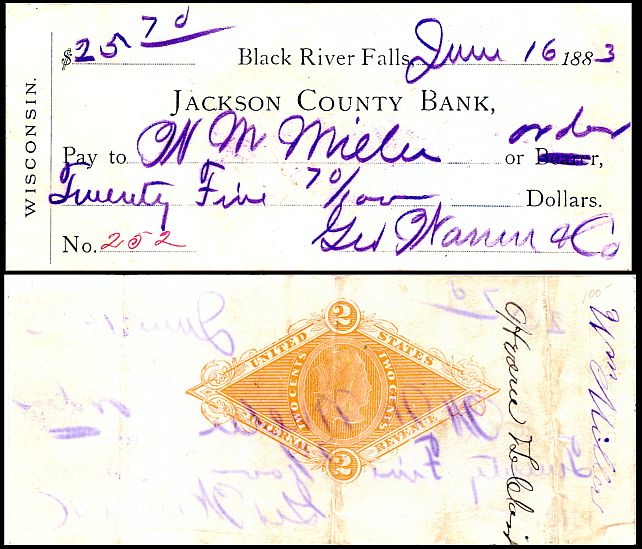 $25 70
Black River Falls, June 16 1883
JACKSON COUNTY BANK,
Pay to W M Miller or order Bearer,
Twenty Five 70/100 Dollars.
No. 252
Geo Warren & Co
WISCONSIN.
2
UNITED STATES
TWO CENTS TWO CENTS
INTERNAL REVENUE
2
Wm Miller
100